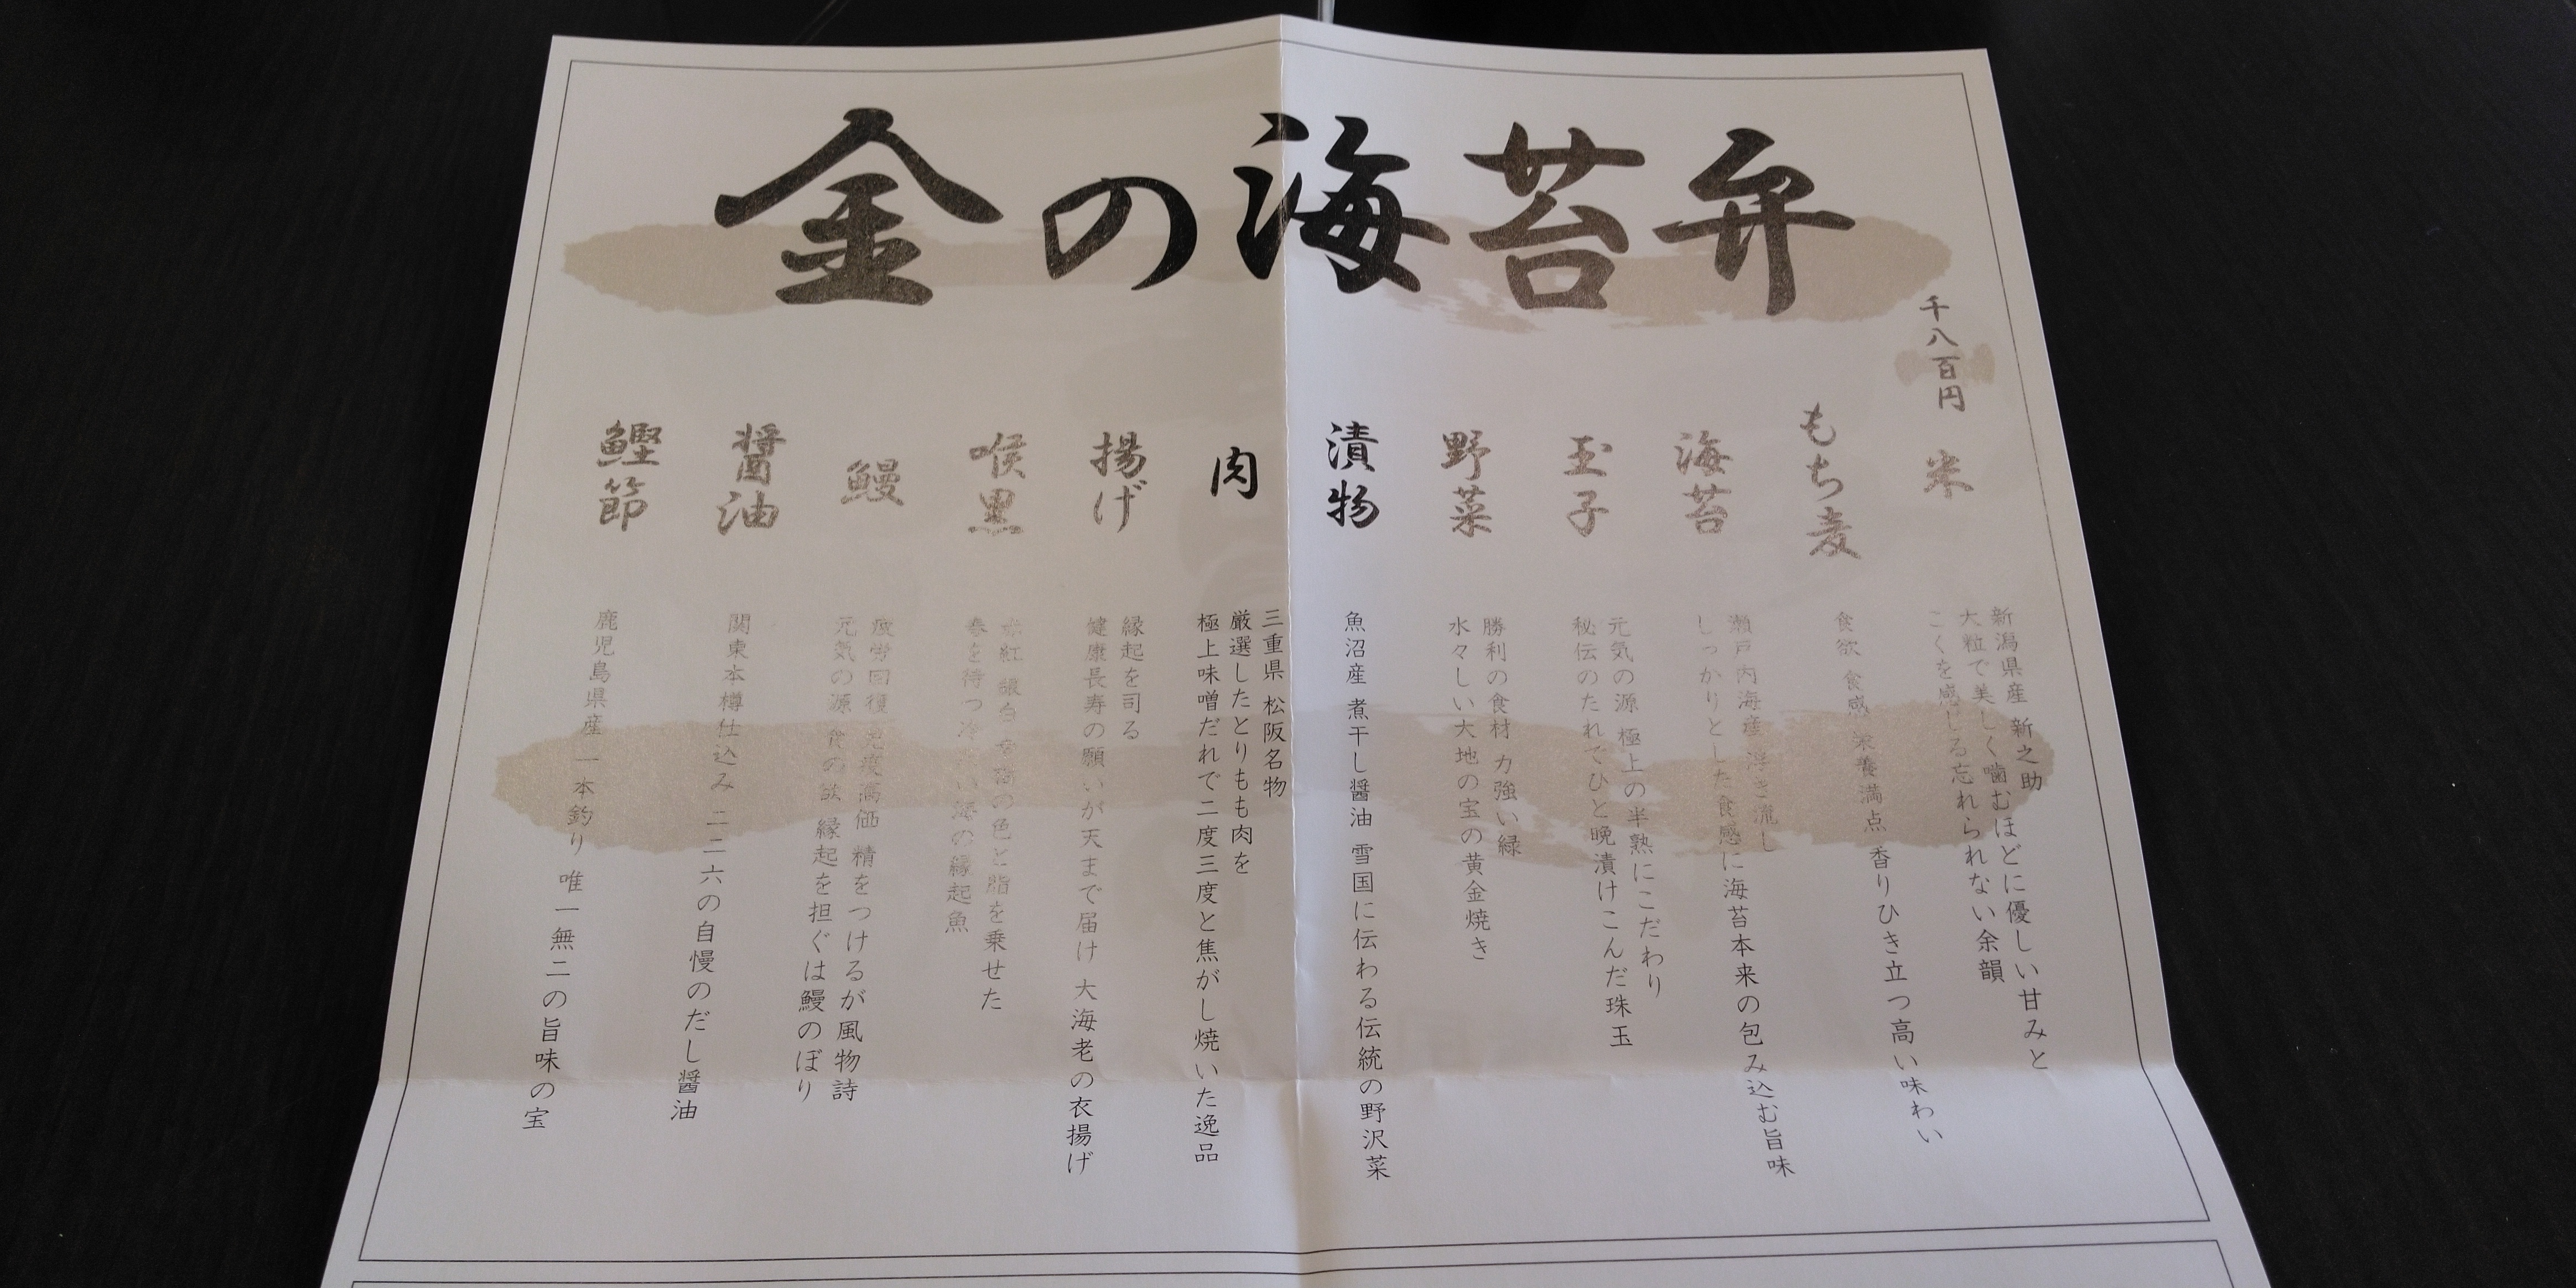 金の海苔弁
千八百円
米
新潟県産 新之助
大粒で美しく噛むほどに優しい甘みと
こくを感じる忘れられない余韻
もち麦
食欲 食感 栄養満点 香りひき立つ高い味わい
海苔
瀬戸内海産 浮き流し
しっかりとした食感に海苔本来の包み込む旨味
玉子
元気の源 極上の半熟にこだわり
秘伝のたれでひと晩漬けこんだ珠玉
野菜
勝利の食材 力強い緑
水々しい大地の宝の黄金焼き
漬物
魚沼産 煮干し醤油 雪国に伝わる伝統の野沢菜
肉
三重県 松阪名物
厳選したとりもも肉を
極上味噌だれで二度三度と焦がし焼いた逸品
揚げ
縁起を司る
健康長寿の願いが天まで届け 大海老の衣揚げ
喉黒
赤紅 銀白の色と脂を乗せた
春を待つ冷たい海の縁起魚
鰻
疲労回復 免疫高価 精をつけるが風物詩
元気の源 食の欲 縁起を担ぐは鰻のぼり
醤油
関東本樽仕込み 二二六の自慢のだし醤油
鰹節
鹿児島県産 一本釣り 唯一無二の旨味の宝